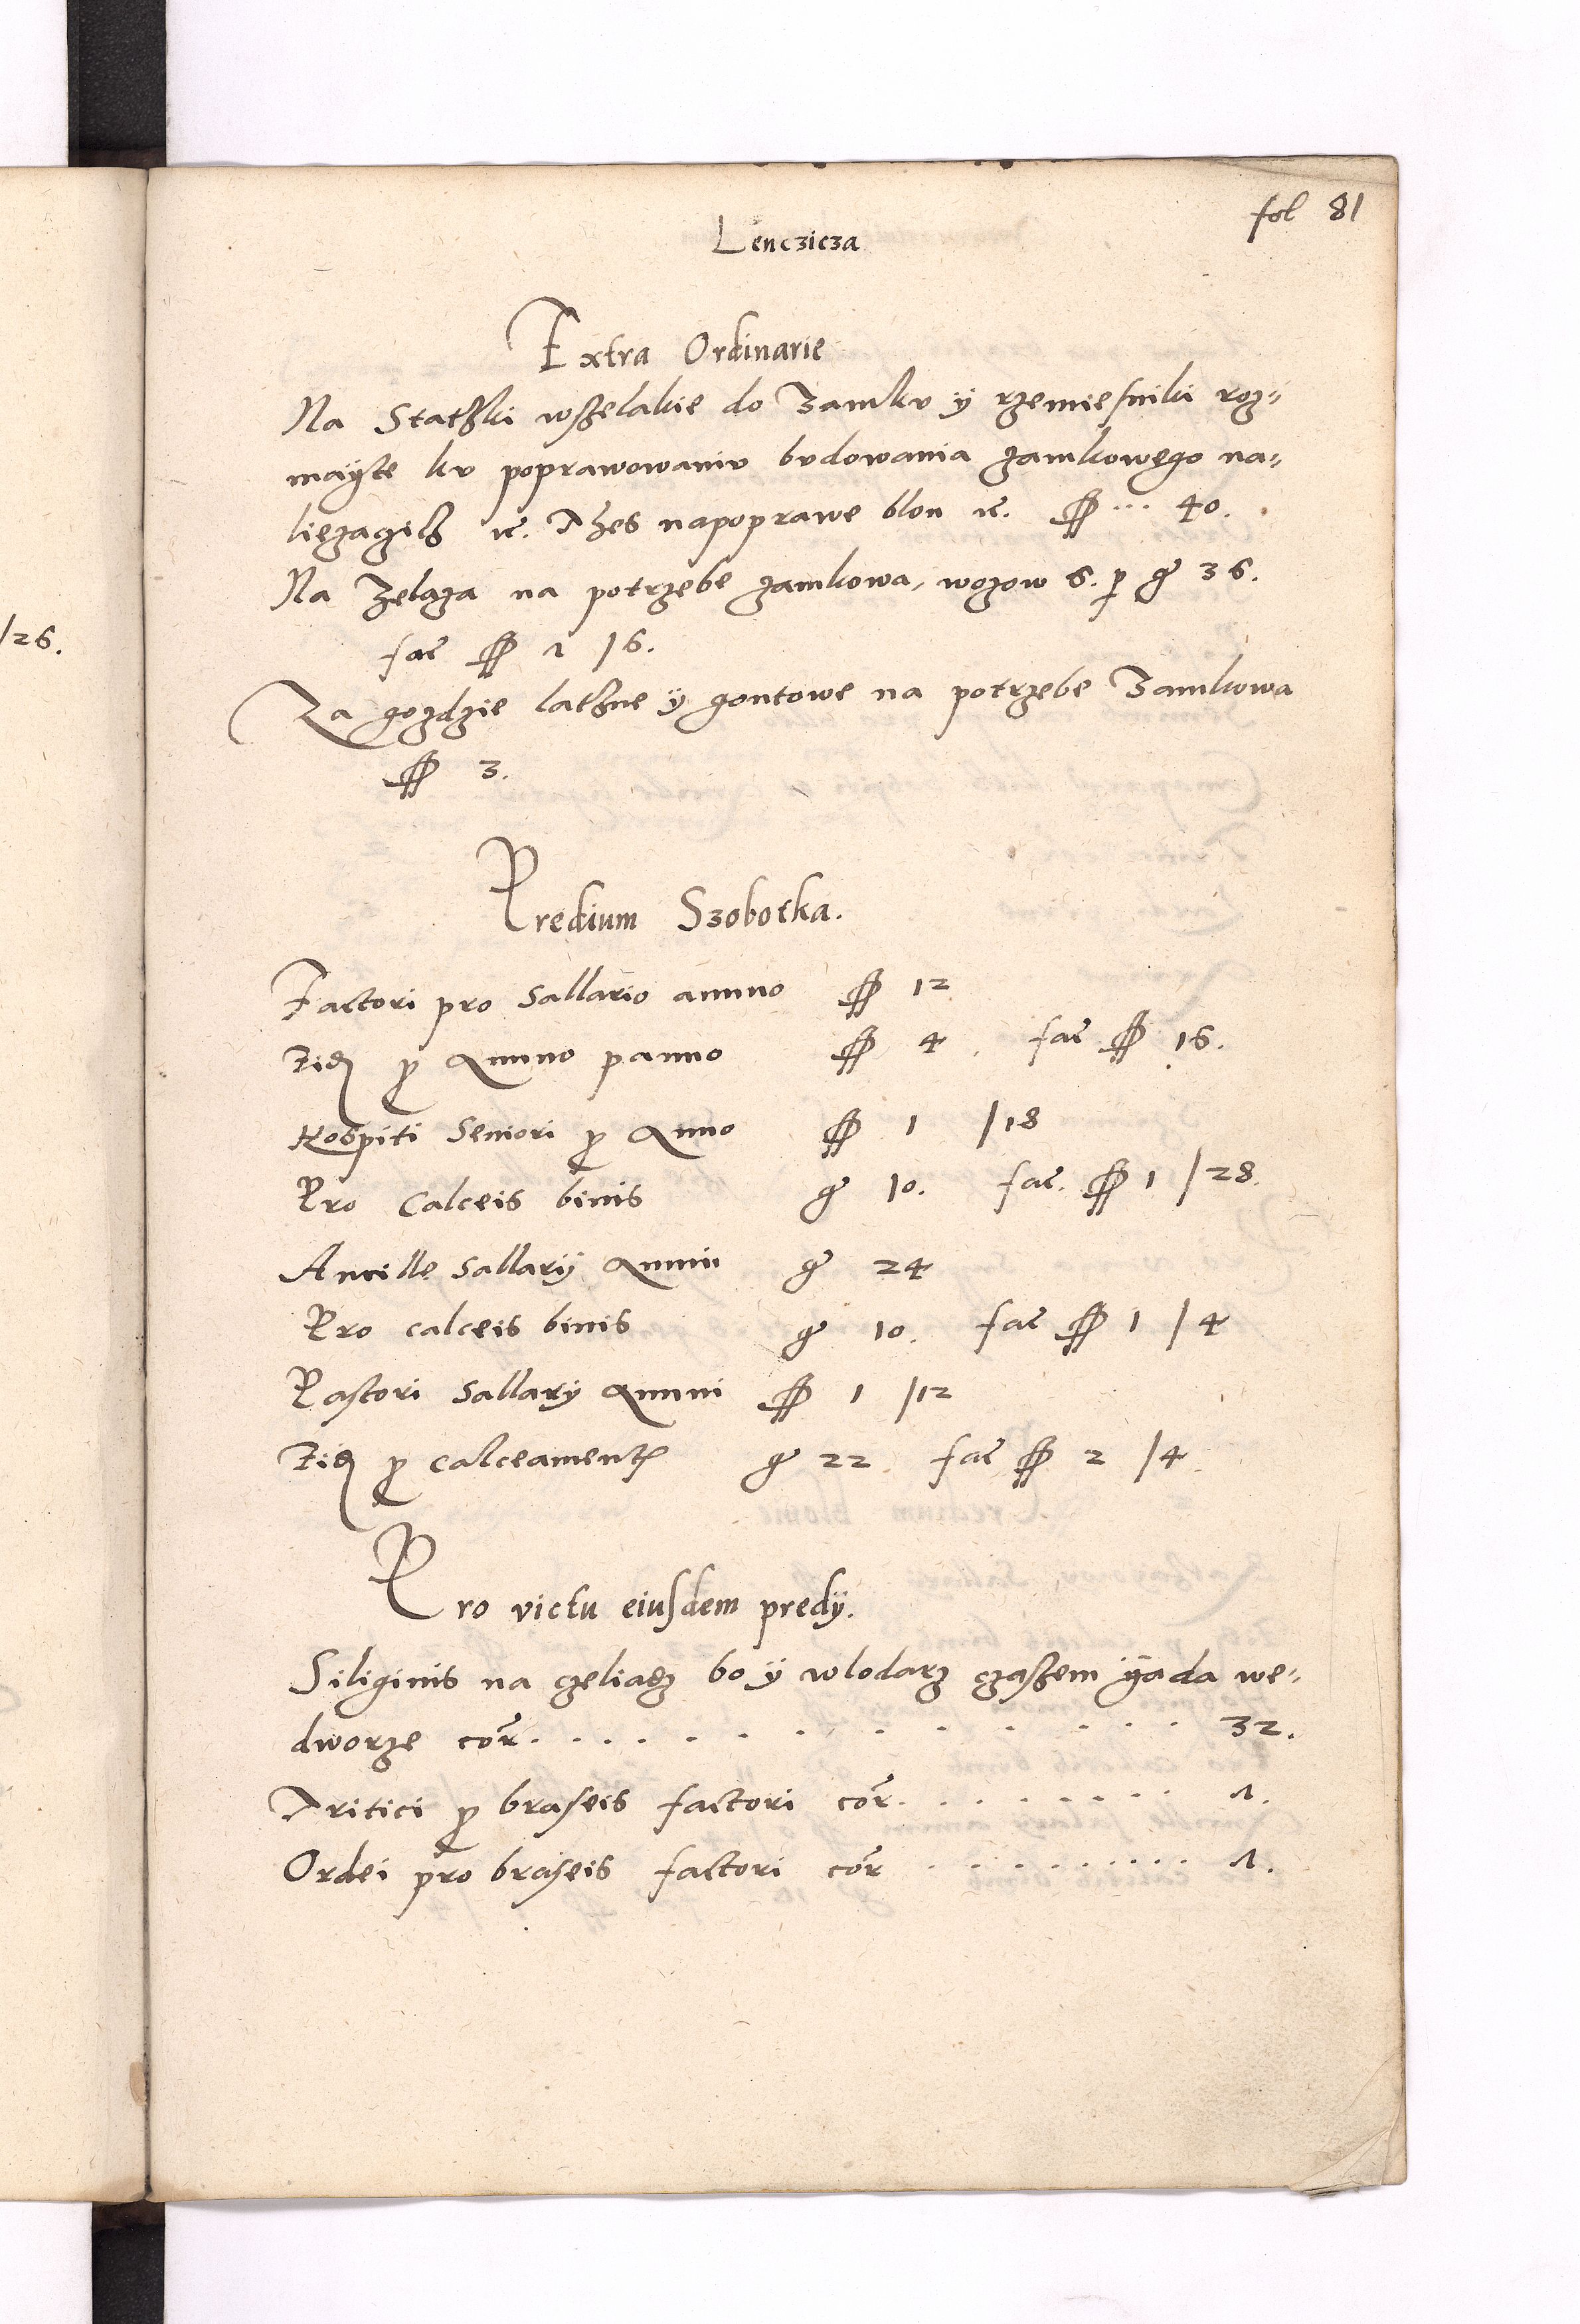 fol 81
Lenczicza
Extra Ordinarie
Na Statzki wszelakie do Zamku ÿ rzemiesniki roz=
mayte ku poprawowaniu budowania zamkowego na=
liezaczich etc. Thes napoprawe blon etc. ff ... 40.
Na Zelaza na potrzebe zamkowa, wozow 6. p gr 36.
fac ff 7 /6.
Za gozdzie lathne ÿ gontowe na potrzebe Zamkowa
ff 3.
Predium Szobotka.
Factori pro Sallario annuo ff 12
Eidem pro Annuo panno ff 4. fac ff 16.
Hospiti Seniori pro Anno ff 1 /18
Pro Calceis binis gr 10. fac. ff 1 /28.
Ancille Sallarÿ Annui gr 24
Pro calceis binis gr 10. fac ff 1 /4
Pastori Sallary Annui ff 1 /12
Eidem pro calceamentis gr 22. fac ff 2 /4.
Pro victu eiusdem predÿ.
Siliginis na czeliadz bo ÿ wlodarz czassem ÿada we=
dworze cor. . . . . . . . . . . . 32.
Tritici pro braseis factori cor. . . . . . . . 1.
Ordei pro braseis factori cor . . . . . . . . . . 1.
/26.